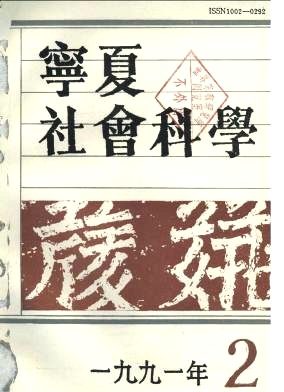 ISSN1002—0292
寧夏
社會科學
一九九一年 2